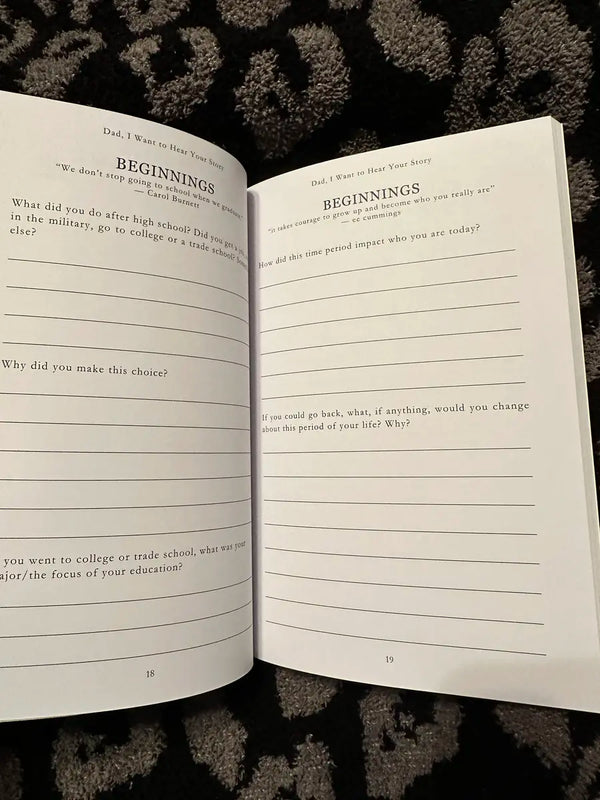 Dad, I Want to Hear Your Story
BEGINNINGS
“We don’t stop going to school when we graduate”
— Carol Burnett
What did you do after high school? Did you get a
in the military, go to college or a trade school?
else?
Why did you make this choice?
you went to college or trade school, what was your
ajor/the focus of your education?
18
Dad, I Want to Hear Your Story
BEGINNINGS
“it takes courage to grow up and become who you really are”
— ee cummings
How did this time period impact who you are today?
If you could go back, what, if anything, would you change
about this period of your life? Why?
19